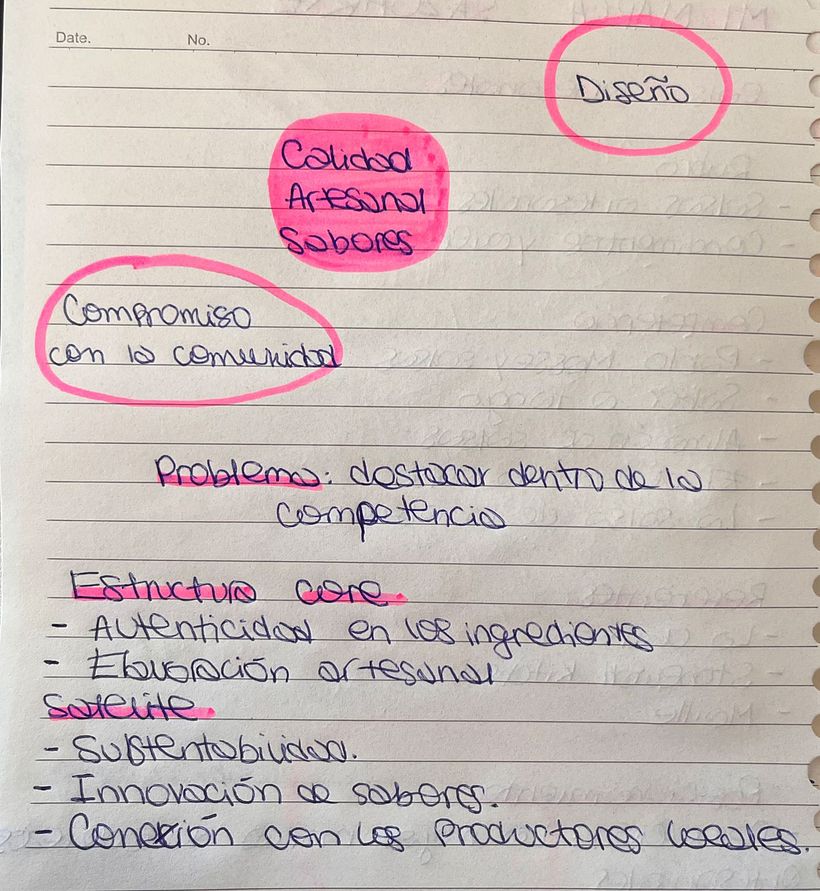 Date.
No.
Diseño
Calidad
Artesanal
Sabores
Compromiso
con la comunidad
Problema: destacar dentro de la
competencia
Estructura core.
- Autenticidad en los ingredientes
- Elaboración artesanal
Satelite.
- Sustentabilidad.
- Innovación de sabores.
- Conexión con los productores locales.